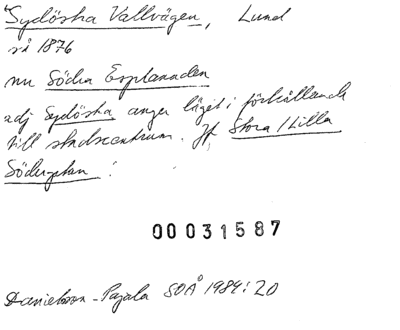 Sydöstra Vallvägen, Lund
så 1876
nu Södra Esplanaden
adj Sydöstra anger läget i förhållande
till stadscentrum. Jf, Stora / Lilla
Söderplan !
00031587
Danielsson-Pajala SOÅ 1984:20